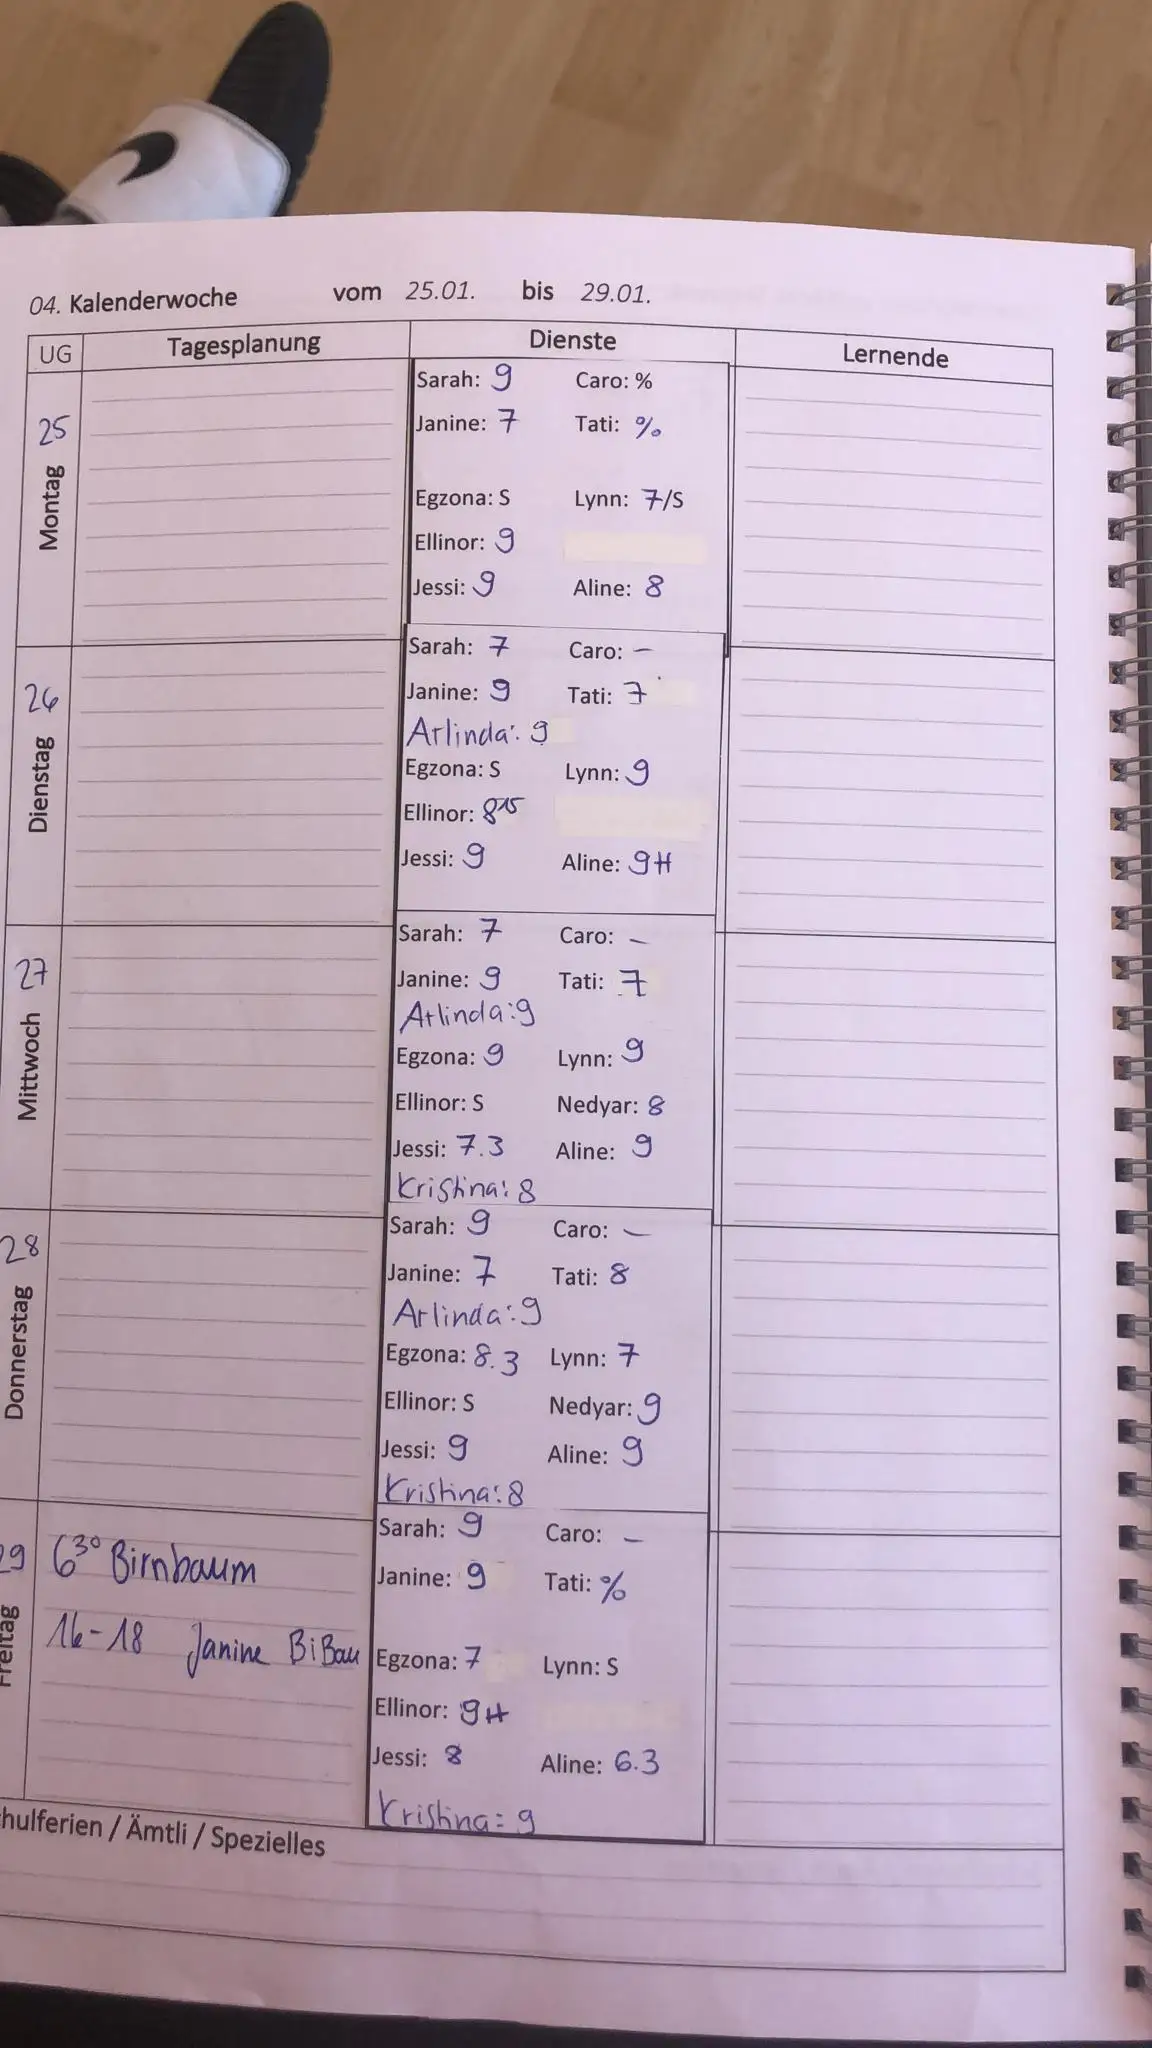 04. Kalenderwoche vom 25.01. bis 29.01.
UG Tagesplanung Dienste Lernende
25 Montag
Sarah: 9 Caro: %
Janine: 7 Tati: %
Egzona: S Lynn: 7/S
Ellinor: 9
Jessi: 9 Aline: 8
26 Dienstag
Sarah: 7 Caro: –
Janine: 9 Tati: 7
Arlinda: 9
Egzona: S Lynn: 9
Ellinor: 815
Jessi: 9 Aline: 9H
27 Mittwoch
Sarah: 7 Caro: –
Janine: 9 Tati: 7
Arlinda: 9
Egzona: 9 Lynn: 9
Ellinor: S Nedyar: 8
Jessi: 7.3 Aline: 9
Kristina: 8
28 Donnerstag
Sarah: 9 Caro: –
Janine: 7 Tati: 8
Arlinda: 9
Egzona: 8.3 Lynn: 7
Ellinor: S Nedyar: 9
Jessi: 9 Aline: 9
Kristina: 8
29 Freitag
6³⁰ Birnbaum
16-18 Janine BiBau
Sarah: 9 Caro: –
Janine: 9 Tati: %
Egzona: 7 Lynn: S
Ellinor: 9H
Jessi: 8 Aline: 6.3
Kristina = 9
hulferien / Ämtli / Spezielles